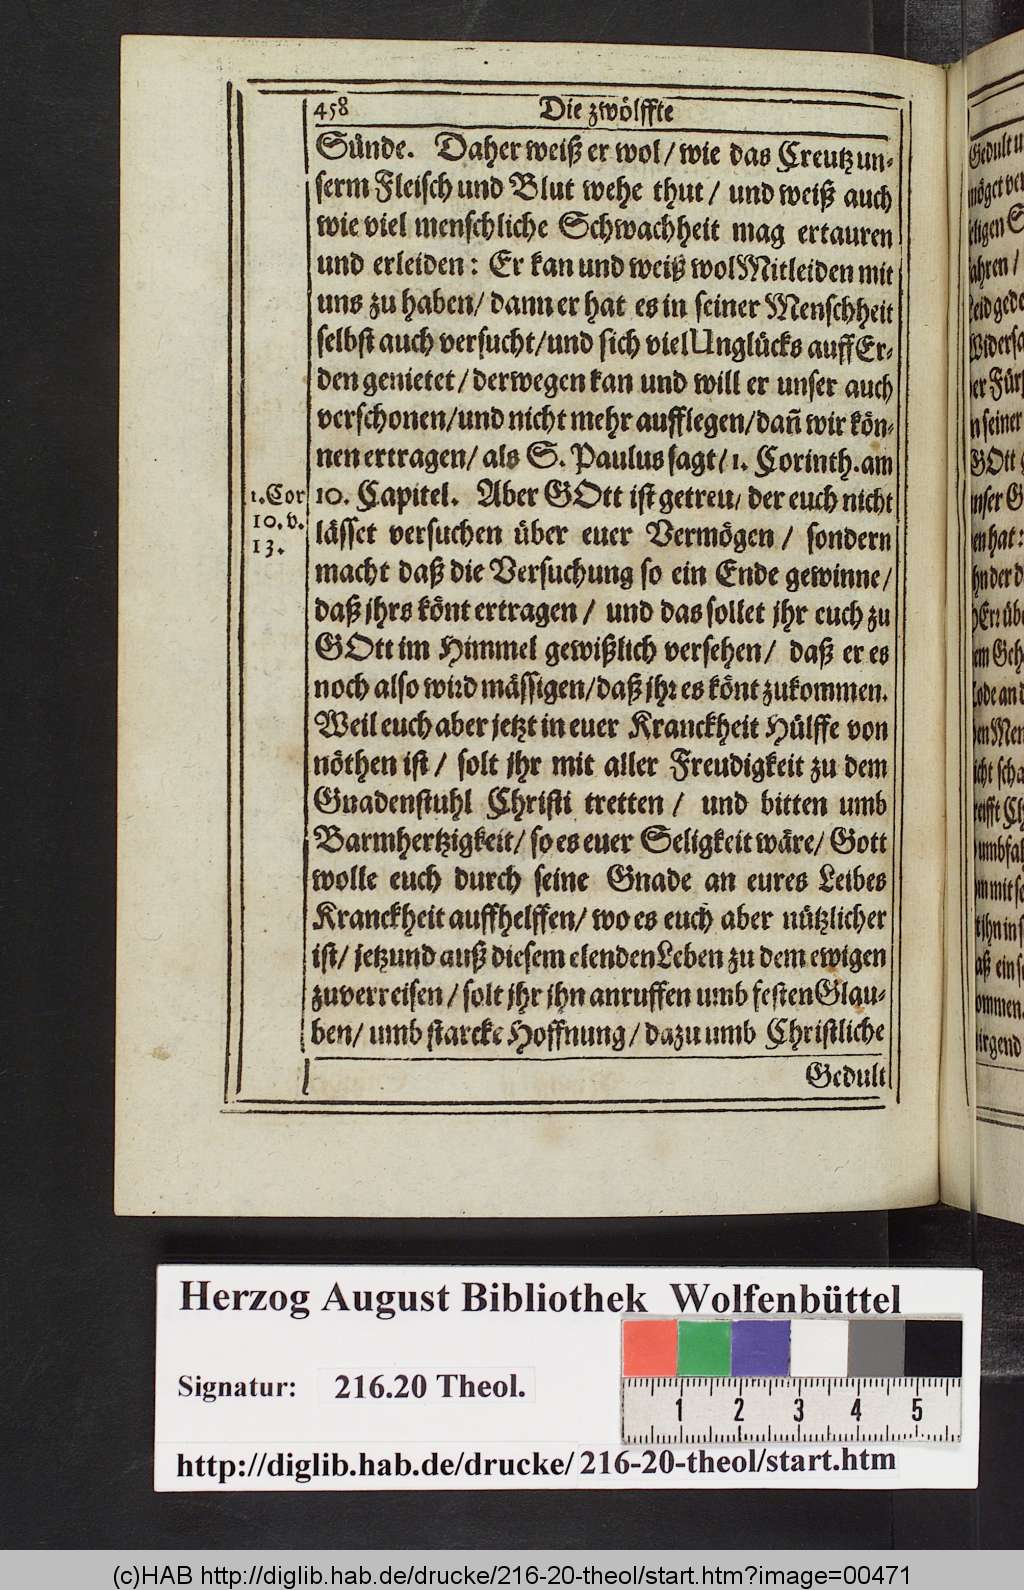 458 Die zwölffte
Sünde. Daher weiß er wol / wie das Creutz un-
serm Fleisch und Blut wehe thut / und weiß auch
wie viel menschliche Schwachheit mag ertauren
und erleiden: Er kan und weiß wol Mitleiden mit
uns zu haben / dann er hat es in seiner Menschheit
selbst auch versucht / und sich viel Unglücks auff Er-
den genietet / derwegen kan und will er unser auch
verschonen / und nicht mehr aufflegen / dañ wir kön-
nen ertragen / als S. Paulus sagt / 1. Corinth. am
1. Cor
10. v.
13.
10. Capitel. Aber GOtt ist getreu / der euch nicht
lässet versuchen über euer Vermögen / sondern
macht daß die Versuchung so ein Ende gewinne /
daß jhrs könt ertragen / und das sollet jhr euch zu
GOtt im Himmel gewißlich versehen / daß er es
noch also wird mässigen / daß jhr es könt zukommen.
Weil euch aber jetzt in euer Kranckheit Hülffe von
nöthen ist / solt jhr mit aller Freudigkeit zu dem
Gnadenstuhl Christi tretten / und bitten umb
Barmhertzigkeit / so es euer Seligkeit wäre / Gott
wolle euch durch seine Gnade an eures Leibes
Kranckheit auffhelffen / wo es euch aber nützlicher
ist / jetzund auß diesem elenden Leben zu dem ewigen
zuverreisen / solt jhr jhn anruffen umb festen Glau-
ben / umb starcke Hoffnung / dazu umb Christliche
Gedult
Herzog August Bibliothek Wolfenbüttel
Signatur: 216.20 Theol.
1 2 3 4 5
http://diglib.hab.de/drucke/216-20-theol/start.htm
(c)HAB http://diglib.hab.de/drucke/216-20-theol/start.htm?image=00471